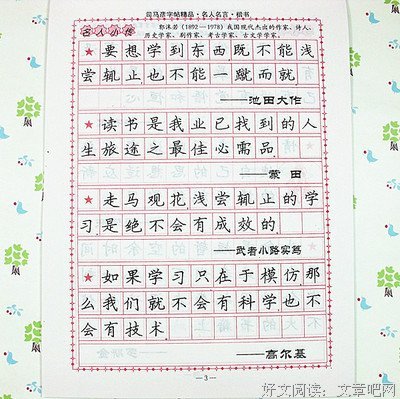 司马彦字帖精品·名人名言·楷书
名人小传
郭沫若(1892—1978)我国现代杰出的作家、诗人、
历史学家、剧作家、考古学家、古文字学家。
★要想学到东西既不能浅
尝辄止也不能一蹴而就.
——池田大作
★读书是我业已找到的人
生旅途之最佳必需品.
——蒙田
★走马观花浅尝辄止的学
习是绝不会有成效的.
——武者小路实笃
★如果学习只在于模仿那
么我们就不会有科学也不
会有技术.
——高尔基
—3—
好文阅读:文章吧网